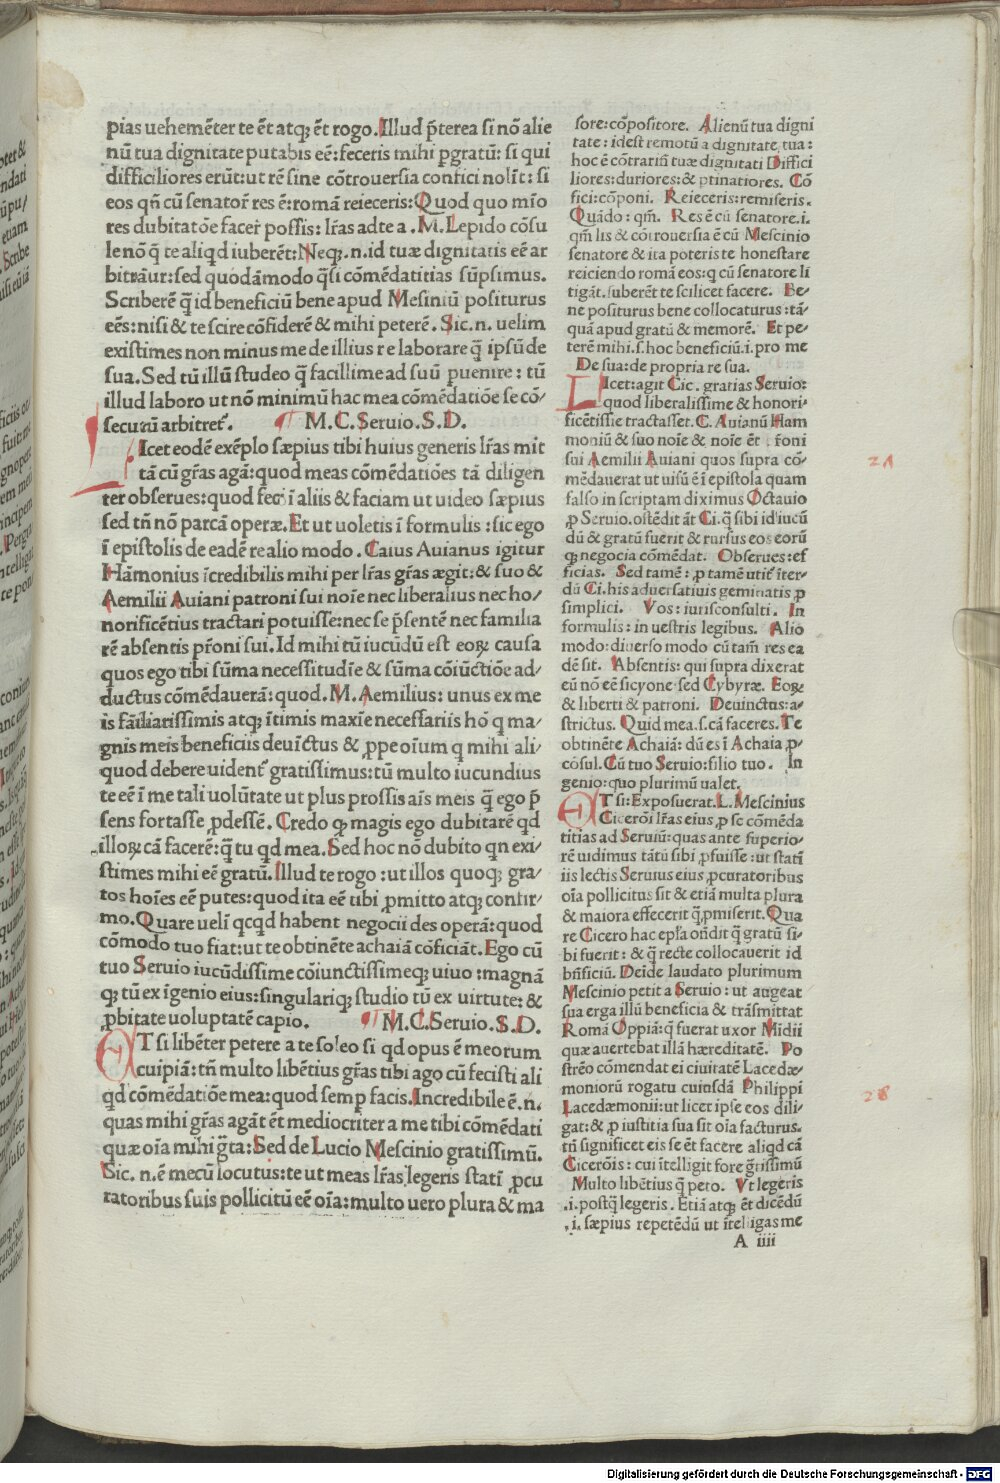 pias uehemēter te ēt atq; ēt rogo. Illud p̄terea si nō alie
nū tua dignitate putabis eē: feceris mihi pgratū: si qui
difficiliores erūt: ut rē sine cōtrouersia confici nolīt: si
eos qn̄ cū senator̄ res ē: romā reieceris: Quod quo mīo
res dubitatōe facer̄ possis: lr̄as ad te a .M. Lepido cōsu
le nō q̄ te aliqd iuberēt: Neq;.n. id tuæ dignitatis eē ar
bitrāur: sed quodāmodo q̄si cōmēdatitias sūpsimus.
Scriberē q̄ id beneficiū bene apud Mesiniū positurus
eēs: nisi & te scire cōfiderē & mihi peterē. Sic.n. uelim
existimes non minus me de illius re laborare q̄ ipsū de
sua. Sed tū illū studeo q̄ facillime ad suū puenire: tū
illud laboro ut nō minimū hac mea cōmēdatiōe se cō/
secutū arbitret̄. M.C. Seruio.S.D.
LIcet eodē exēplo sæpius tibi huius generis lr̄as mit
tā cū gr̄as agā: quod meas cōmēdatiōes tā diligen
ter obserues: quod feci ī aliis & faciam ut uideo sæpius
sed tn̄ nō parcā operæ. Et ut uoletis ī formulis: sic ego
ī epistolis de eadē re alio modo. Caius Auianus igitur
Hāmonius īcredibilis mihi per lr̄as gr̄as ægit: & suo &
Aemilii Auiani patroni sui noīe nec liberalius nec ho/
norificētius tractari potuisse: nec se p̄sentē nec familia
rē absentis pr̄oni sui. Id mihi tū iucūdū est eoꝝ causa
quos ego tibi sūma necessitudīe & sūma cōiūctiōe ad/
ductus cōmēdauerā: quod .M. Aemilius: unus ex me
is fāiliarissimis atq; ītimis maxīe necessariis hō q̄ ma/
gnis meis beneficiis deuīctus & ꝓpe oīum q mihi ali/
quod debere uident̄ gratissimus: tū multo iucundius
te eē ī me tali uolūtate ut plus prossis aīs meis q̄ ego p̄
sens fortasse ꝓdessē. Credo qꝫ magis ego dubitarē qd
illoꝝ cā facerē: q̄ tu qd mea. Sed hoc nō dubito qn exi/
stimes mihi eē gratū. Illud te rogo: ut illos quoq; gra/
tos hoīes eē putes: quod ita eē tibi ꝓmitto atq; confir/
mo. Quare uelī qcqd habent negocii des operā: quod
cōmodo tuo fiat: ut te obtinēte achaiā cōficiāt. Ego cū
tuo Seruio iucūdissime cōiunctissimeq; uiuo: magnā
q; tū ex īgenio eius: singulariq; studio tū ex uirtute: &
ꝓbitate uoluptatē capio. M.C. Seruio.S.D.
ETsi libēter petere a te soleo si qd opus ē meorum
cuipiā: tn̄ multo libētius gr̄as tibi ago cū fecisti ali
qd cōmēdatiōe mea: quod semp facis. Incredibile ē.n.
quas mihi gr̄as agāt ēt mediocriter a me tibi cōmēdati
quæ oīa mihi ḡta: Sed de Lucio Mescinio gratissimū.
Sic.n.ē mecū locutus: te ut meas lr̄as legeris statī ꝓcu
ratoribus suis pollicitū eē oīa: multo uero plura & ma
sore: cōpositore. Alienū tua digni
tate: idest remotū a dignitate tua:
hoc ē cōtrariū tuæ dignitati Diffici
liores: duriores: & ptinatiores. Cō
fici: cōponi. Reieceris: remiseris.
Quādo: qm̄. Res ē cū senatore.i.
qm̄ lis & cōtrouersia ē cū Mescinio
senatore & ita poteris te honestare
reiciendo romā eos: q cū senatore li
tigāt. iuberēt te scilicet facere. Be/
ne positurus bene collocaturus: tā/
quā apud gratū & memorē. Et pe/
terē mihi.s. hoc beneficiū.i. pro me
De sua: de propria re sua.
LIcet: agit Cic. gratias Seruio:
quod liberalissime & honori/
ficētissie tractasset. C. Auianū Ham
moniū & suo noīe & noīe ēt troni
sui Aemilii Auiani quos supra cō/
mēdauerat ut uisū ē ī epistola quam
falso inscriptam diximus Octauio
ꝓ Seruio. ostēdit āt Ci. q̄ sibi id iucū
dū & gratū fuerit & rursus eos eorū
qꝫ negocia cōmēdat. Obserues: ef
ficias. Sed tamē: ꝓ tamē utit̄ īter/
dū Ci. his aduersatiuis geminatis ꝓ
simplici. Vos: iurisconsulti. In
formulis: in uestris legibus. Alio
modo: diuerso modo cū tam̄ res ea
dē sit. Absentis: qui supra dixerat
eū nō eē sicyone sed Cybyræ. Eoꝝ
& liberti & patroni. Deuinctus: a/
strictus. Quid mea.s. cā faceres. Te
obtinēte Achaiā: dū es ī Achaia ꝓ/
cōsul. Cū tuo Seruio: filio tuo. In
genio: quo plurimū ualet.
ETsi: Exposuerat. L. Mescinius
Cicerōi lr̄as eius, ꝓ se cōmēda
titias ad Seruiū: quas ante superio/
rē uidimus tātū sibi ꝓfuisse: ut statī
iis lectis Seruius eius ꝓcuratoribus
oīa pollicitus sit & etiā multa plura
& maiora effecerit q̄ ꝓmiserit. Qua
re Cicero hac epl̄a on̄dit q̄ gratū si/
bi fuerit: & q̄ recte collocauerit id
bn̄ficiū. Deīde laudato plurimum
Mescinio petit a Seruio: ut augeat
sua erga illū beneficia & trāsmittat
Romā Oppiā: q̄ fuerat uxor Midii
quæ auertebat illā hæreditatē. Po
strēo cōmendat ei ciuitatē Lacedæ/
moniorū rogatu cuiusdā Philippi
Lacedæmonii: ut licet ipse eos dili/
gat: & ꝓ iustitia sua sit oīa facturus.
tū significet eis se ēt facere aliqd cā
Cicerōis: cui ītelligit fore ḡtissimū
Multo libētius q̄ peto. Vt legeris
.i. postq̄ legeris. Etiā atq; ēt dicēdū
.i. sæpius repetēdū ut ītelligas me
A iiii
27
28
Digitalisierung gefördert durch die Deutsche Forschungsgemeinschaft - DFG